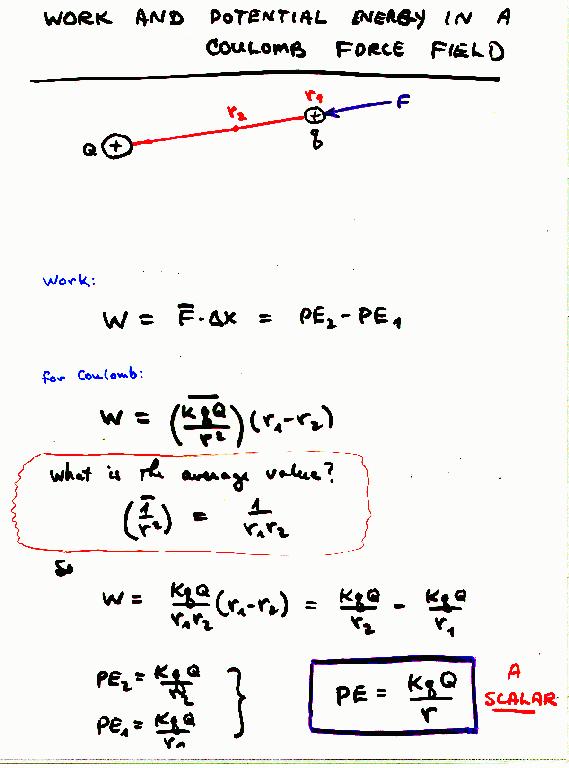 WORK AND POTENTIAL ENERGY IN A
COULOMB FORCE FIELD
r₂ r₁ F
Q + + q
Work:
W = F̅·Δx = PE₂ - PE₁
for Coulomb:
W = (\overline{KqQ/r²})(r₁-r₂)
What is the average value?
(\overline{1/r²}) = 1/r₁r₂
So
W = KqQ/r₁r₂ (r₁-r₂) = KqQ/r₂ - KqQ/r₁
PE₂ = KqQ/r₂
PE₁ = KqQ/r₁ }
PE = KqQ/r
A
SCALAR